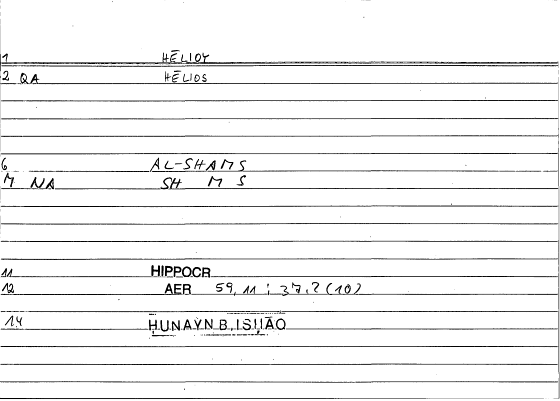 1 HĒLIOY
2 QA HĒLIOS
6 AL-SHAMS
M NA SH M S
11 HIPPOCR
12 AER 59,11 ; 37,2 (10)
14 ḤUNAYN B. ISḤĀQ